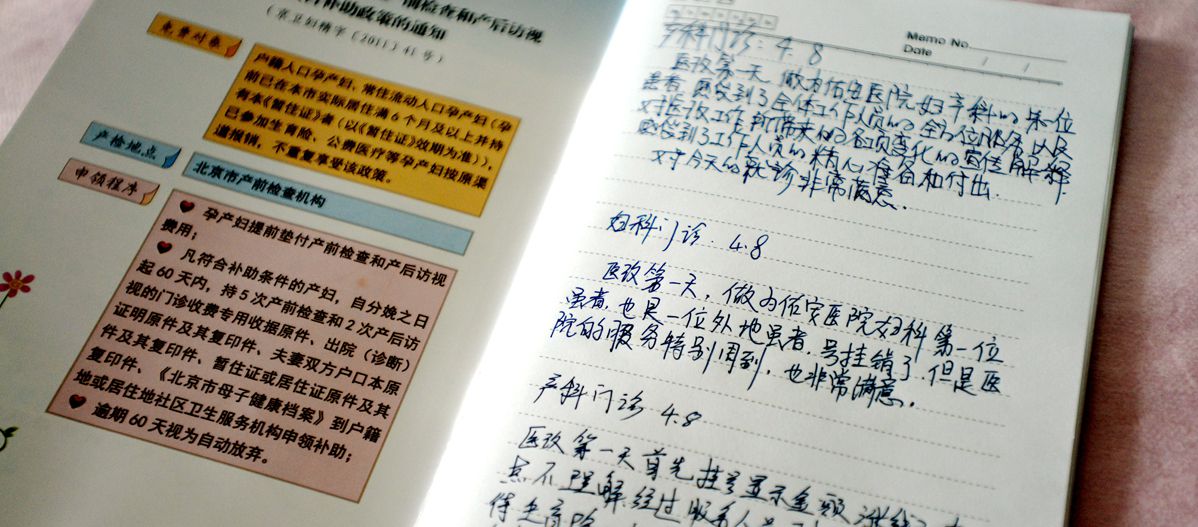 前检查和产后访视
补助政策的通知
(京卫妇精字〔2011〕41号)
免费对象
户籍人口孕产妇、常住流动人口孕产妇(孕
前已在本市实际居住满6个月及以上并持
有本《暂住证》者(以《暂住证》效期为准))、
已参加生育险、公费医疗等孕产妇按原渠
道报销,不重复享受该政策。
产检地点
北京市产前检查机构
申领程序
孕产妇提前垫付产前检查和产后访视
费用;
凡符合补助条件的产妇,自分娩之日
起60天内,持5次产前检查和2次产后访
视的门诊收费专用收据原件、出院(诊断)
证明原件及其复印件、夫妻双方户口本原
件及其复印件、暂住证或居住证原件及其
复印件、《北京市母子健康档案》到户籍
地或居住地社区卫生服务机构申领补助;
逾期60天视为自动放弃。
Memo No.
Date / /
产科门诊:4.8
医改第一天,做为佑安医院妇产科的第一位
患者,感受到了全体工作人员的全方位服务,以及
对医改工作所带来的各项变化的宣传解释
感受到了工作人员的精心准备和付出.
对今天的就诊非常满意.
妇科门诊:4.8
医改第一天,做为佑安医院妇科第一位
患者,也是一位外地患者.号挂错了.但是医
院的服务特别周到,也非常满意.
产科门诊 4.8
医改第一天首先挂号显示金额涨钱了
不理解.经过服务人员